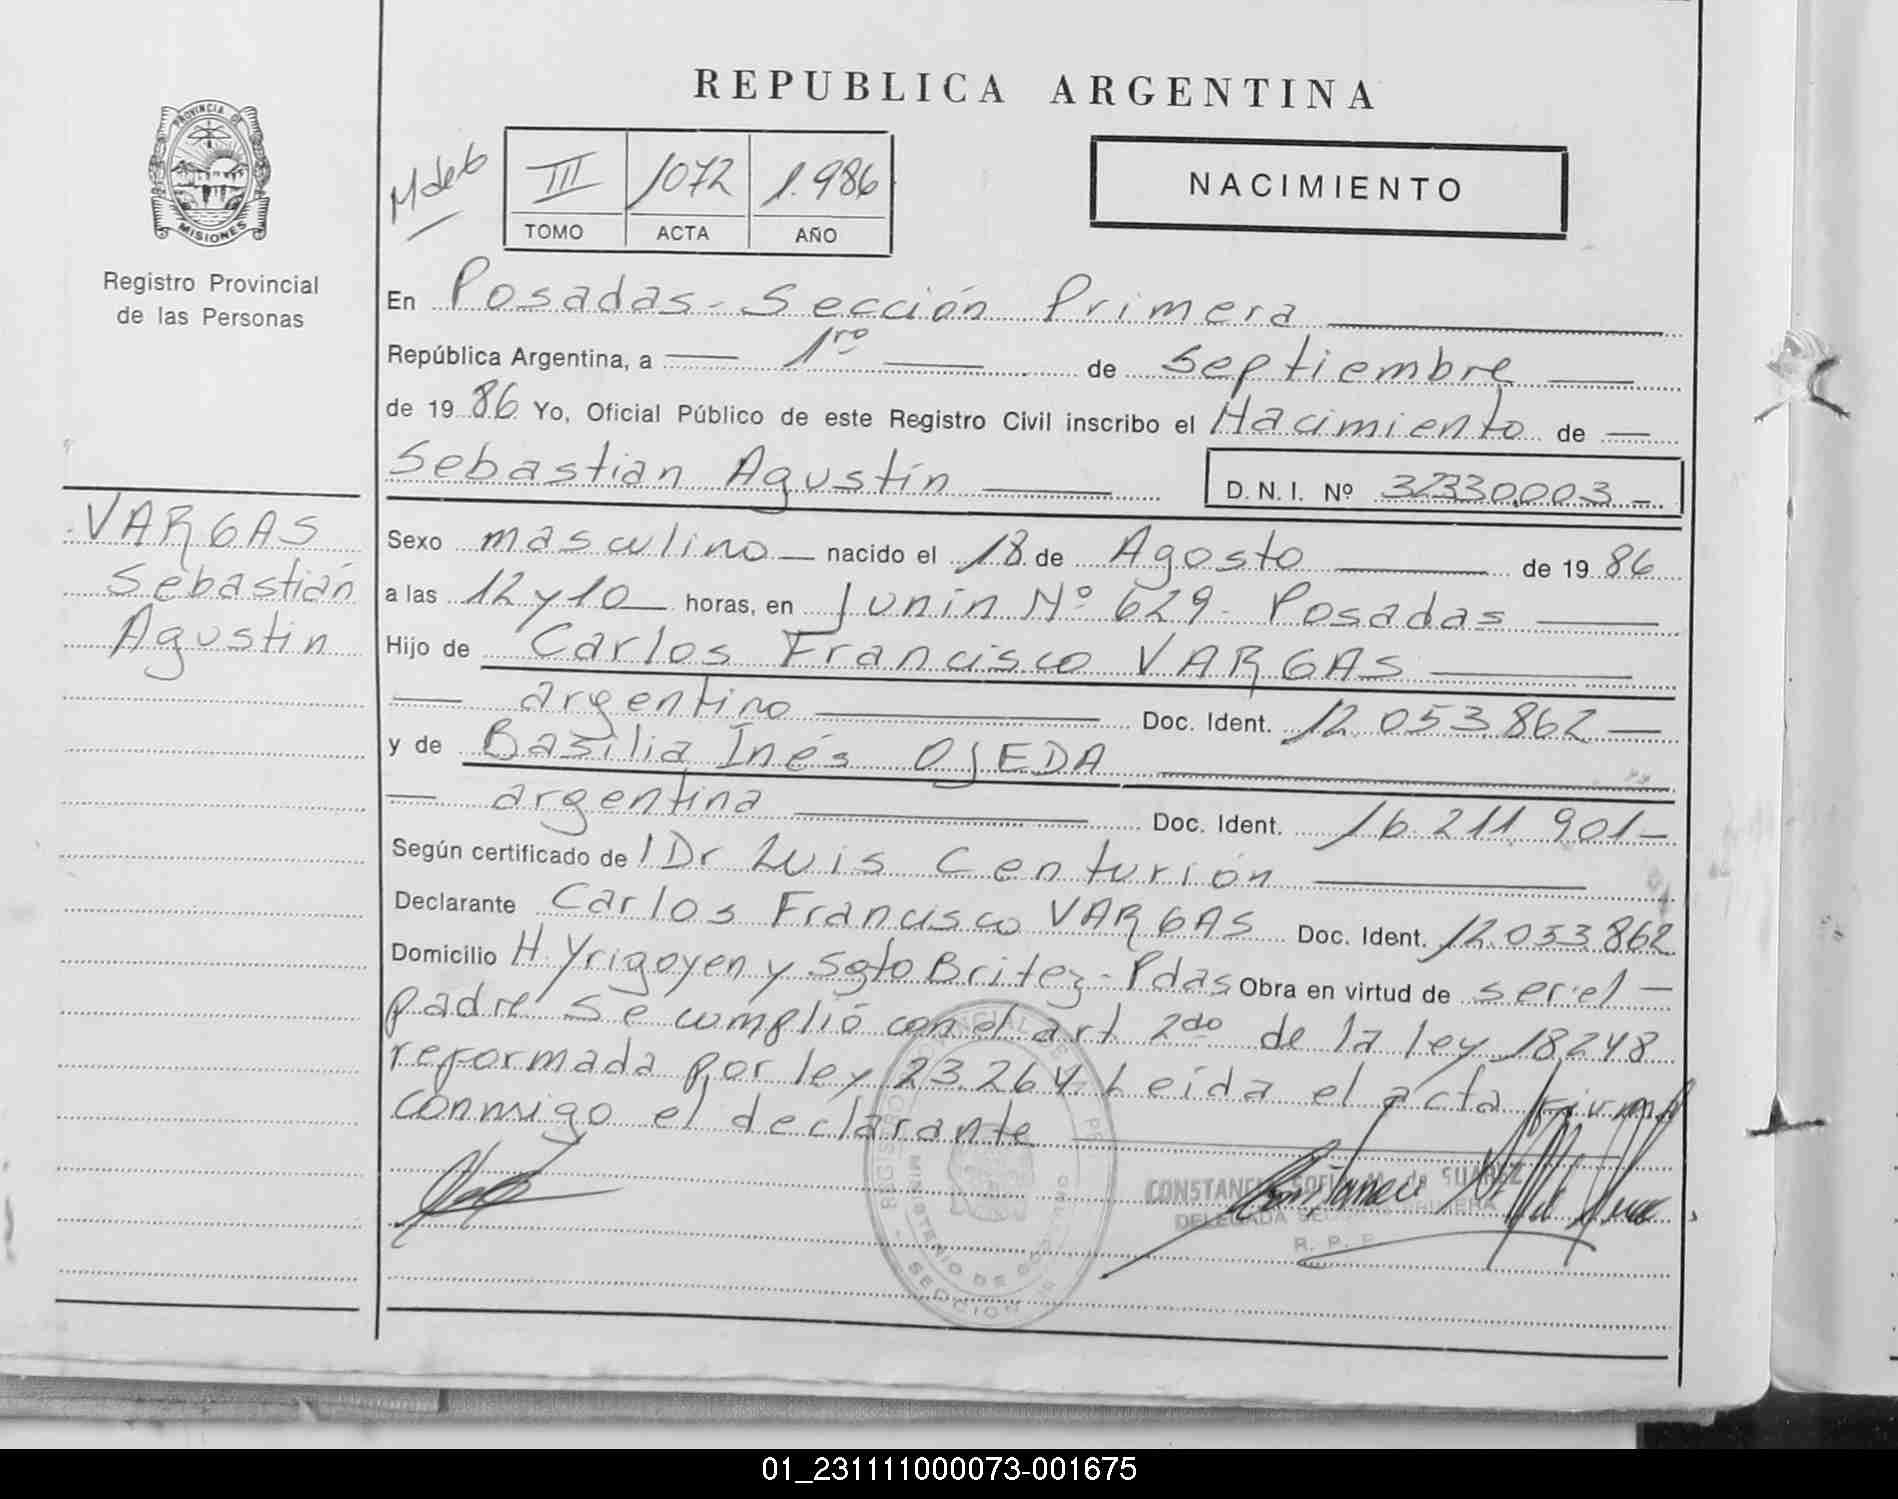 REPUBLICA ARGENTINA
PROVINCIA DE
MISIONES
Registro Provincial
de las Personas
III 1072 1.986
TOMO ACTA AÑO
NACIMIENTO
En Posadas - Sección Primera
República Argentina, a 1ro de Septiembre
de 1986 Yo, Oficial Público de este Registro Civil inscribo el Nacimiento de
Sebastian Agustín D.N.I. Nº 32330.003-
VARGAS
Sebastián
Agustin
Sexo masculino nacido el 18 de Agosto de 1986
a las 12 y 10 horas, en Junín Nº 629 - Posadas
Hijo de Carlos Francisco VARGAS
argentino Doc. Ident. 12.053.862
y de Basilia Inés OJEDA
argentina Doc. Ident. 16.211.901-
Según certificado de l Dr Luis Centurión
Declarante Carlos Francisco VARGAS Doc. Ident. 12.053.862
Domicilio H. Yrigoyen y Sgto Britez - Pdas Obra en virtud de ser el
padre se cumplió con el art. 2do de la ley 18.248
reformada por ley 23.264. Leída el acta firma
conmigo el declarante
DELEGADA SECCION PRIMERA
R. P. P.
01_231111000073-001675